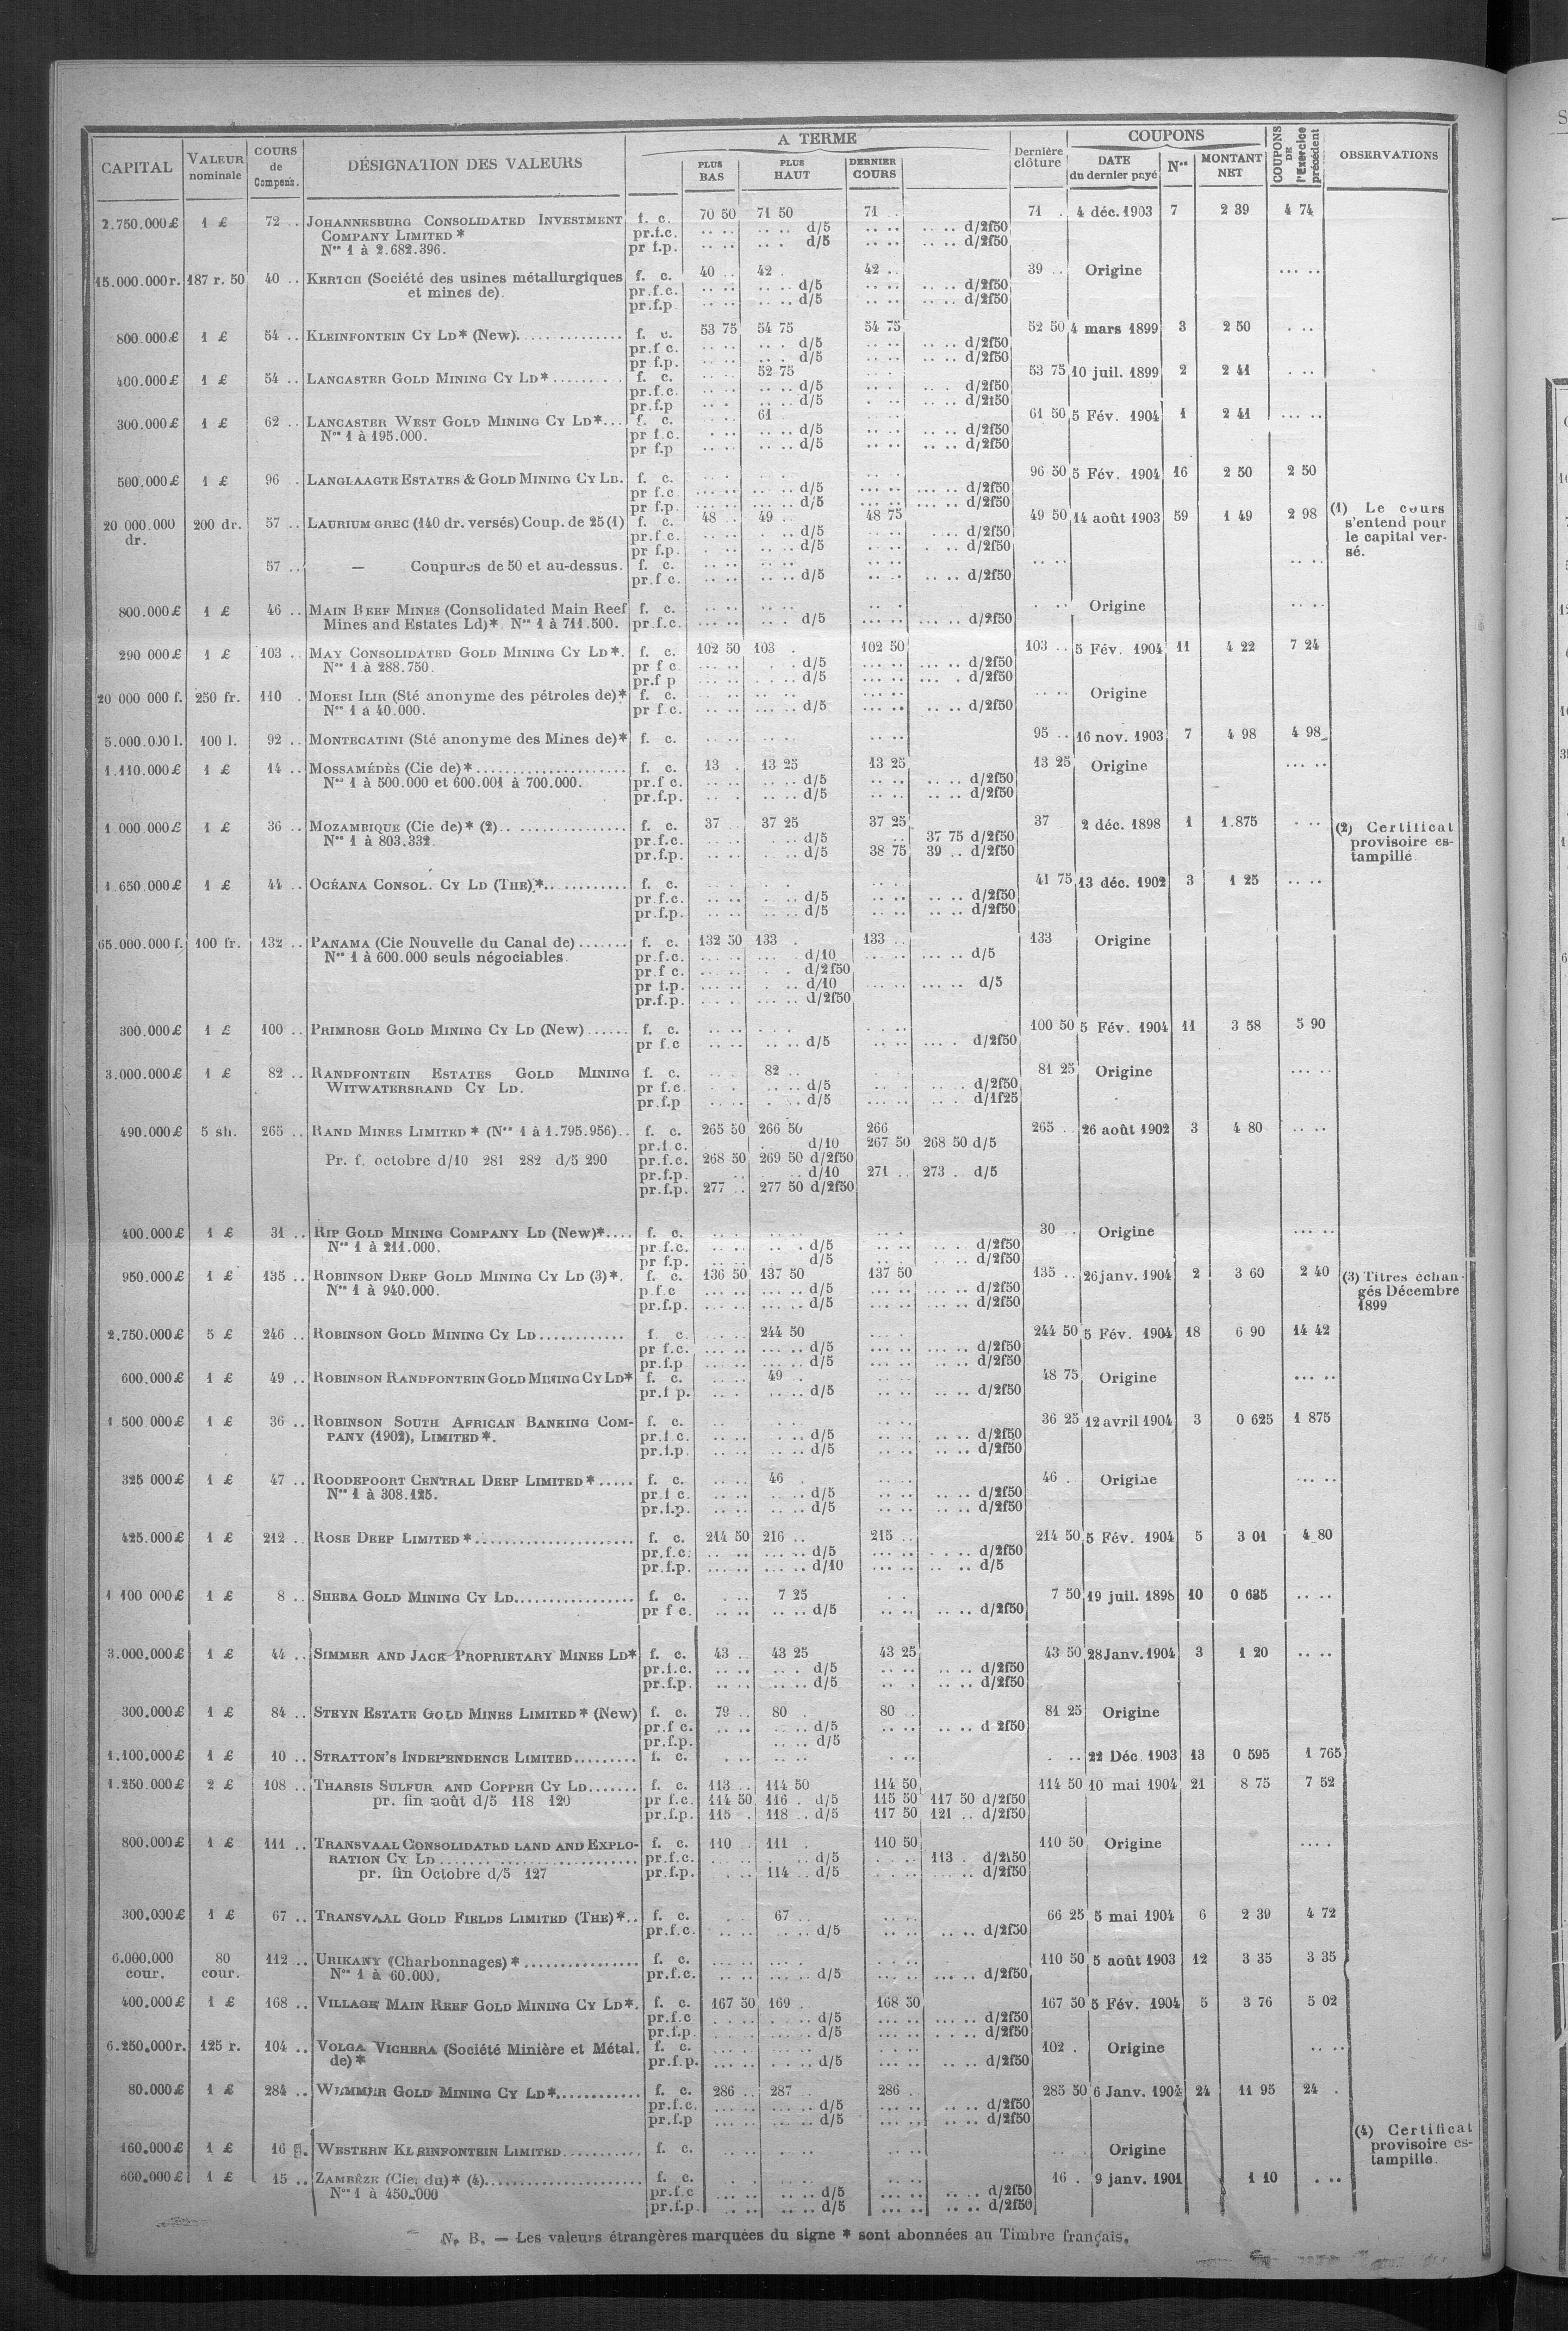 CAPITAL VALEUR nominale COURS de Compens. DÉSIGNATION DES VALEURS A TERME PLUS BAS PLUS HAUT DERNIER COURS Dernière clôture COUPONS DATE du dernier payé Nos MONTANT NET COUPONS DE l'Exercice précédent OBSERVATIONS
2.750.000£ 1 £ 72 .. JOHANNESBURG CONSOLIDATED INVESTMENT f. c. 70 50 71 50 71 .. 71 . 4 déc. 1903 7 2 39 4 74
COMPANY LIMITED * pr.f.c. .. .. d/5 .. .. .. .. d/2f50
Nos 1 à 2.682.396. pr f.p. .. .. d/5 .. .. .. .. d/2f50
15.000.000 r. 187 r. 50 40 .. KERTCH (Société des usines métallurgiques f. c. 40 .. 42 . 42 .. 39 .. Origine ... ..
et mines de). pr.f.c. .. .. d/5 .. .. .. .. d/2f50
pr.f.p. .. .. d/5 .. .. .. .. d/2f50
800.000£ 1 £ 54 .. KLEINFONTEIN CY LD* (New). f. c. 53 75 54 75 54 75 52 50 4 mars 1899 3 2 50 . ..
pr.f c. .. .. d/5 .. .. .. .. d/2f50
pr f.p. .. .. d/5 .. .. .. .. d/2f50
400.000£ 1 £ 54 .. LANCASTER GOLD MINING CY LD* f. c. 52 75 53 75 10 juil. 1899 2 2 41 . ..
pr.f.c. .. .. d/5 .. .. d/2f50
pr.f.p .. .. d/5 .. .. d/2f50
300.000£ 1 £ 62 .. LANCASTER WEST GOLD MINING CY LD* f. c. 61 61 50 5 Fév. 1904 1 2 41 ... ..
Nos 1 à 195.000. pr f.c. .. .. d/5 .. .. d/2f50
pr f.p .. .. d/5 .. .. d/2f50
500.000£ 1 £ 96 . LANGLAAGTE ESTATES & GOLD MINING CY LD. f. c. 96 50 5 Fév. 1904 16 2 50 2 50
pr f.c ... .. d/5 ... .. d/2f50
pr f.p. ... .. d/5 ... .. d/2f50
20.000.000 dr. 200 dr. 57 .. LAURIUM GREC (140 dr. versés) Coup. de 25 (1) f. c. 48 .. 49 .. 48 75 49 50 14 août 1903 59 1 49 2 98 (1) Le cours s'entend pour le capital versé.
pr.f c. .. .. d/5 .. .. d/2f50
pr f.p. .. .. d/5 .. .. d/2f50
57 .. — Coupures de 50 et au-dessus. f. c. .. .. .. ..
pr.f c. .. .. d/5 .. .. d/2f50
800.000£ 1 £ 46 .. MAIN REEF MINES (Consolidated Main Reef f. c. .. .. Origine .. ..
Mines and Estates Ld)*. Nos 1 à 711.500. pr.f.c. ... .. d/5 ... .. d/2f50
290 000£ 1 £ 103 .. MAY CONSOLIDATED GOLD MINING CY LD*. f. c. 102 50 103 . 102 50 103 .. 5 Fév. 1904 11 4 22 7 24
Nos 1 à 288.750. pr f c. .. .. d/5 ... .. d/2f50
pr.f p .. .. d/5 ... .. d/2f50
20 000 000 f. 250 fr. 110 . MOESI ILIR (Sté anonyme des pétroles de)* f. c. .. .. Origine
Nos 1 à 40.000. pr f.c. .. .. d/5 ... .. d/2f50
5.000.000 l. 100 l. 92 .. MONTECATINI (Sté anonyme des Mines de)* f. c. 95 .. 16 nov. 1903 7 4 98 4 98
1.110.000£ 1 £ 14 .. MOSSAMÉDÈS (Cie de)* f. c. 13 . 13 25 13 25 13 25 Origine ... ..
Nos 1 à 500.000 et 600.001 à 700.000. pr.f c. .. .. d/5 .. .. d/2f50
pr.f.p. .. .. d/5 .. .. d/2f50
1.000.000£ 1 £ 36 .. MOZAMBIQUE (Cie de)* (2) f. c. 37 .. 37 25 37 25 37 2 déc. 1898 1 1.875 . .. (2) Certificat provisoire estampillé.
Nos 1 à 803.332. pr.f.c. .. .. d/5 37 75 d/2f50
pr.f.p. .. .. d/5 38 75 39 .. d/2f50
1.650.000£ 1 £ 44 .. OCÉANA CONSOL. CY LD (THE)* f. c. 41 75 13 déc. 1902 3 1 25 .. ..
pr.f.c. .. .. d/5 .. .. d/2f50
pr.f.p. .. .. d/5 .. .. d/2f50
65.000.000 f. 100 fr. 132 .. PANAMA (Cie Nouvelle du Canal de) f. c. 132 50 133 . 133 .. 133 Origine
Nos 1 à 600.000 seuls négociables. pr.f.c. .. .. d/10 ... .. d/5
pr.f c. .. .. d/2f50
pr f.p. .. .. d/10 ... .. d/5
pr.f.p. .. .. d/2f50
300.000£ 1 £ 100 .. PRIMROSE GOLD MINING CY LD (New) f. c. 100 50 5 Fév. 1904 11 3 58 5 90
pr f.c .. .. d/5 .. .. d/2f50
3.000.000£ 1 £ 82 .. RANDFONTEIN ESTATES GOLD MINING f. c. 82 .. 81 25 Origine ... ..
WITWATERSRAND CY LD. pr f.c. .. .. d/5 .. .. d/2f50
pr.f.p .. .. d/5 .. .. d/1f25
490.000£ 5 sh. 265 .. RAND MINES LIMITED * (Nos 1 à 1.795.956) f. c. 265 50 266 50 266 265 .. 26 août 1902 3 4 80 .. ..
pr.f c. d/10 267 50 268 50 d/5
Pr. f. octobre d/10 281 282 d/5 290 pr.f.c. 268 50 269 50 d/2f50
pr.f.p. .. d/10 271 .. 273 .. d/5
pr.f.p. 277 .. 277 50 d/2f50
400.000£ 1 £ 31 .. RIP GOLD MINING COMPANY LD (New)* f. c. 30 .. Origine ... ..
Nos 1 à 211.000. pr f.c. .. .. d/5 .. .. d/2f50
pr f.p. .. .. d/5 .. .. d/2f50
950.000£ 1 £ 135 .. ROBINSON DEEP GOLD MINING CY LD (3)*. f. c. 136 50 137 50 137 50 135 .. 26 janv. 1904 2 3 60 2 40 (3) Titres échangés Décembre 1899
Nos 1 à 940.000. p.f.c ... .. d/5 ... .. d/2f50
pr.f.p. ... .. d/5 ... .. d/2f50
2.750.000£ 5 £ 246 .. ROBINSON GOLD MINING CY LD f. c. 244 50 244 50 5 Fév. 1904 18 6 90 14 42
pr f.c. ... .. d/5 ... .. d/2f50
pr.f.p ... .. d/5 ... .. d/2f50
600.000£ 1 £ 49 .. ROBINSON RANDFONTEIN GOLD MINING CY LD* f. c. 49 . 48 75 Origine ... ..
pr.f p. .. .. d/5 .. .. d/2f50
1 500.000£ 1 £ 36 .. ROBINSON SOUTH AFRICAN BANKING COM- f. c. 36 25 12 avril 1904 3 0 625 1 875
PANY (1902), LIMITED*. pr.f.c. .. .. d/5 .. .. d/2f50
pr.f.p. .. .. d/5 .. .. d/2f50
325 000£ 1 £ 47 .. ROODEPOORT CENTRAL DEEP LIMITED* f. c. 46 . 46 . Origine ... ..
Nos 1 à 308.125. pr.f c. .. .. d/5 .. .. d/2f50
pr.f.p. .. .. d/5 .. .. d/2f50
425.000£ 1 £ 212 .. ROSE DEEP LIMITED* f. c. 214 50 216 .. 215 .. 214 50 5 Fév. 1904 5 3 01 4 80
pr.f.c. ... .. d/5 ... .. d/2f50
pr.f.p. ... .. d/10 ... .. d/5
1 100 000£ 1 £ 8 .. SHEBA GOLD MINING CY LD. f. c. 7 25 7 50 19 juil. 1898 10 0 625 .. ..
pr f c. .. .. d/5 .. .. d/2f50
3.000.000£ 1 £ 44 .. SIMMER AND JACK PROPRIETARY MINES LD* f. c. 43 .. 43 25 43 25 43 50 28 Janv. 1904 3 1 20 .. ..
pr.f.c. .. .. d/5 .. .. d/2f50
pr.f.p. .. .. d/5 .. .. d/2f50
300.000£ 1 £ 84 .. STEYN ESTATE GOLD MINES LIMITED* (New) f. c. 79 .. 80 . 80 .. 81 25 Origine
pr.f c. .. .. d/5 .. .. d 2f50
pr.f.p. .. .. d/5
1.100.000£ 1 £ 10 .. STRATTON'S INDEPENDENCE LIMITED f. c. . .. 22 Déc. 1903 13 0 595 1 765
1.250.000£ 2 £ 108 .. THARSIS SULFUR AND COPPER CY LD f. c. 113 .. 114 50 114 50 114 50 10 mai 1904 21 8 75 7 52
pr. fin août d/5 118 120 pr f.c. 114 50 116 . d/5 115 50 117 50 d/2f50
pr.f.p. 115 . 118 .. d/5 117 50 121 .. d/2f50
800.000£ 1 £ 111 .. TRANSVAAL CONSOLIDATED LAND AND EXPLO- f. c. 110 .. 111 . 110 50 110 50 Origine ....
RATION CY LD pr.f.c. .. .. d/5 113 . d/2f50
pr. fin Octobre d/5 127 pr.f.p. 114 .. d/5 .. d/2f50
300.000£ 1 £ 67 .. TRANSVAAL GOLD FIELDS LIMITED (THE)* f. c. 67 .. 66 25 5 mai 1904 6 2 39 4 72
pr.f.c. .. .. d/5 .. .. d/2f50
6.000.000 cour. 80 cour. 112 .. URIKANY (Charbonnages)* f. c. 110 50 5 août 1903 12 3 35 3 35
Nos 1 à 60.000. pr.f.c. .. .. d/5 ... .. d/2f50
400.000£ 1 £ 168 .. VILLAGE MAIN REEF GOLD MINING CY LD*. f. c. 167 50 169 .. 168 50 167 50 5 Fév. 1904 5 3 76 5 02
pr.f.c .. .. d/5 ... .. d/2f50
pr.f.p. .. .. d/5 ... .. d/2f50
6.250.000 r. 125 r. 104 .. VOLGA VICHERA (Société Minière et Métal. f. c. 102 . Origine .. ..
de)* pr.f.p. ... .. d/5 .. .. d/2f50
80.000£ 1 £ 284 .. WEMMER GOLD MINING CY LD* f. c. 286 .. 287 . 286 .. 285 50 6 Janv. 1904 24 11 95 24 .
pr.f.c. ... .. d/5 ... .. d/2f50
pr.f.p ... .. d/5 ... .. d/2f50
160.000£ 1 £ 16 . WESTERN KLEINFONTEIN LIMITED f. c. Origine (4) Certificat provisoire estampille.
600.000£ 1 £ 15 .. ZAMBÈZE (Cie du)* (4) f. c. 16 . 9 janv. 1901 1 10 . ..
Nos 1 à 450.000 pr.f.c ... .. d/5 ... .. d/2f50
pr.f.p. ... .. d/5 ... .. d/2f50
N. B. — Les valeurs étrangères marquées du signe * sont abonnées au Timbre français.